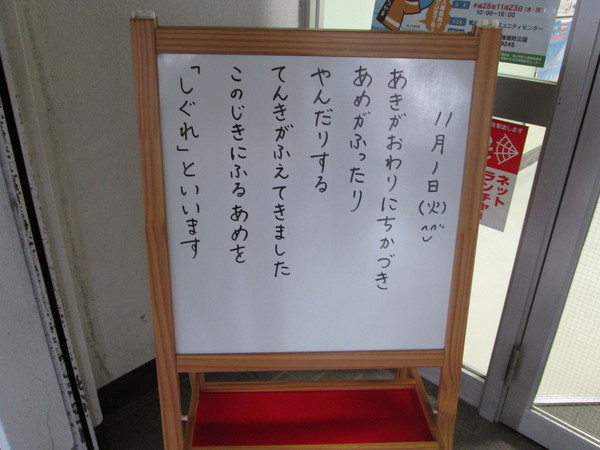 11月1日(火)
あきがおわりにちかづき
あめがふったり
やんだりする
てんきがふえてきました
このじきにふるあめを
「しぐれ」といいます
平成28年11月23日(水・祝)
10:00~16:00
9245
ネット